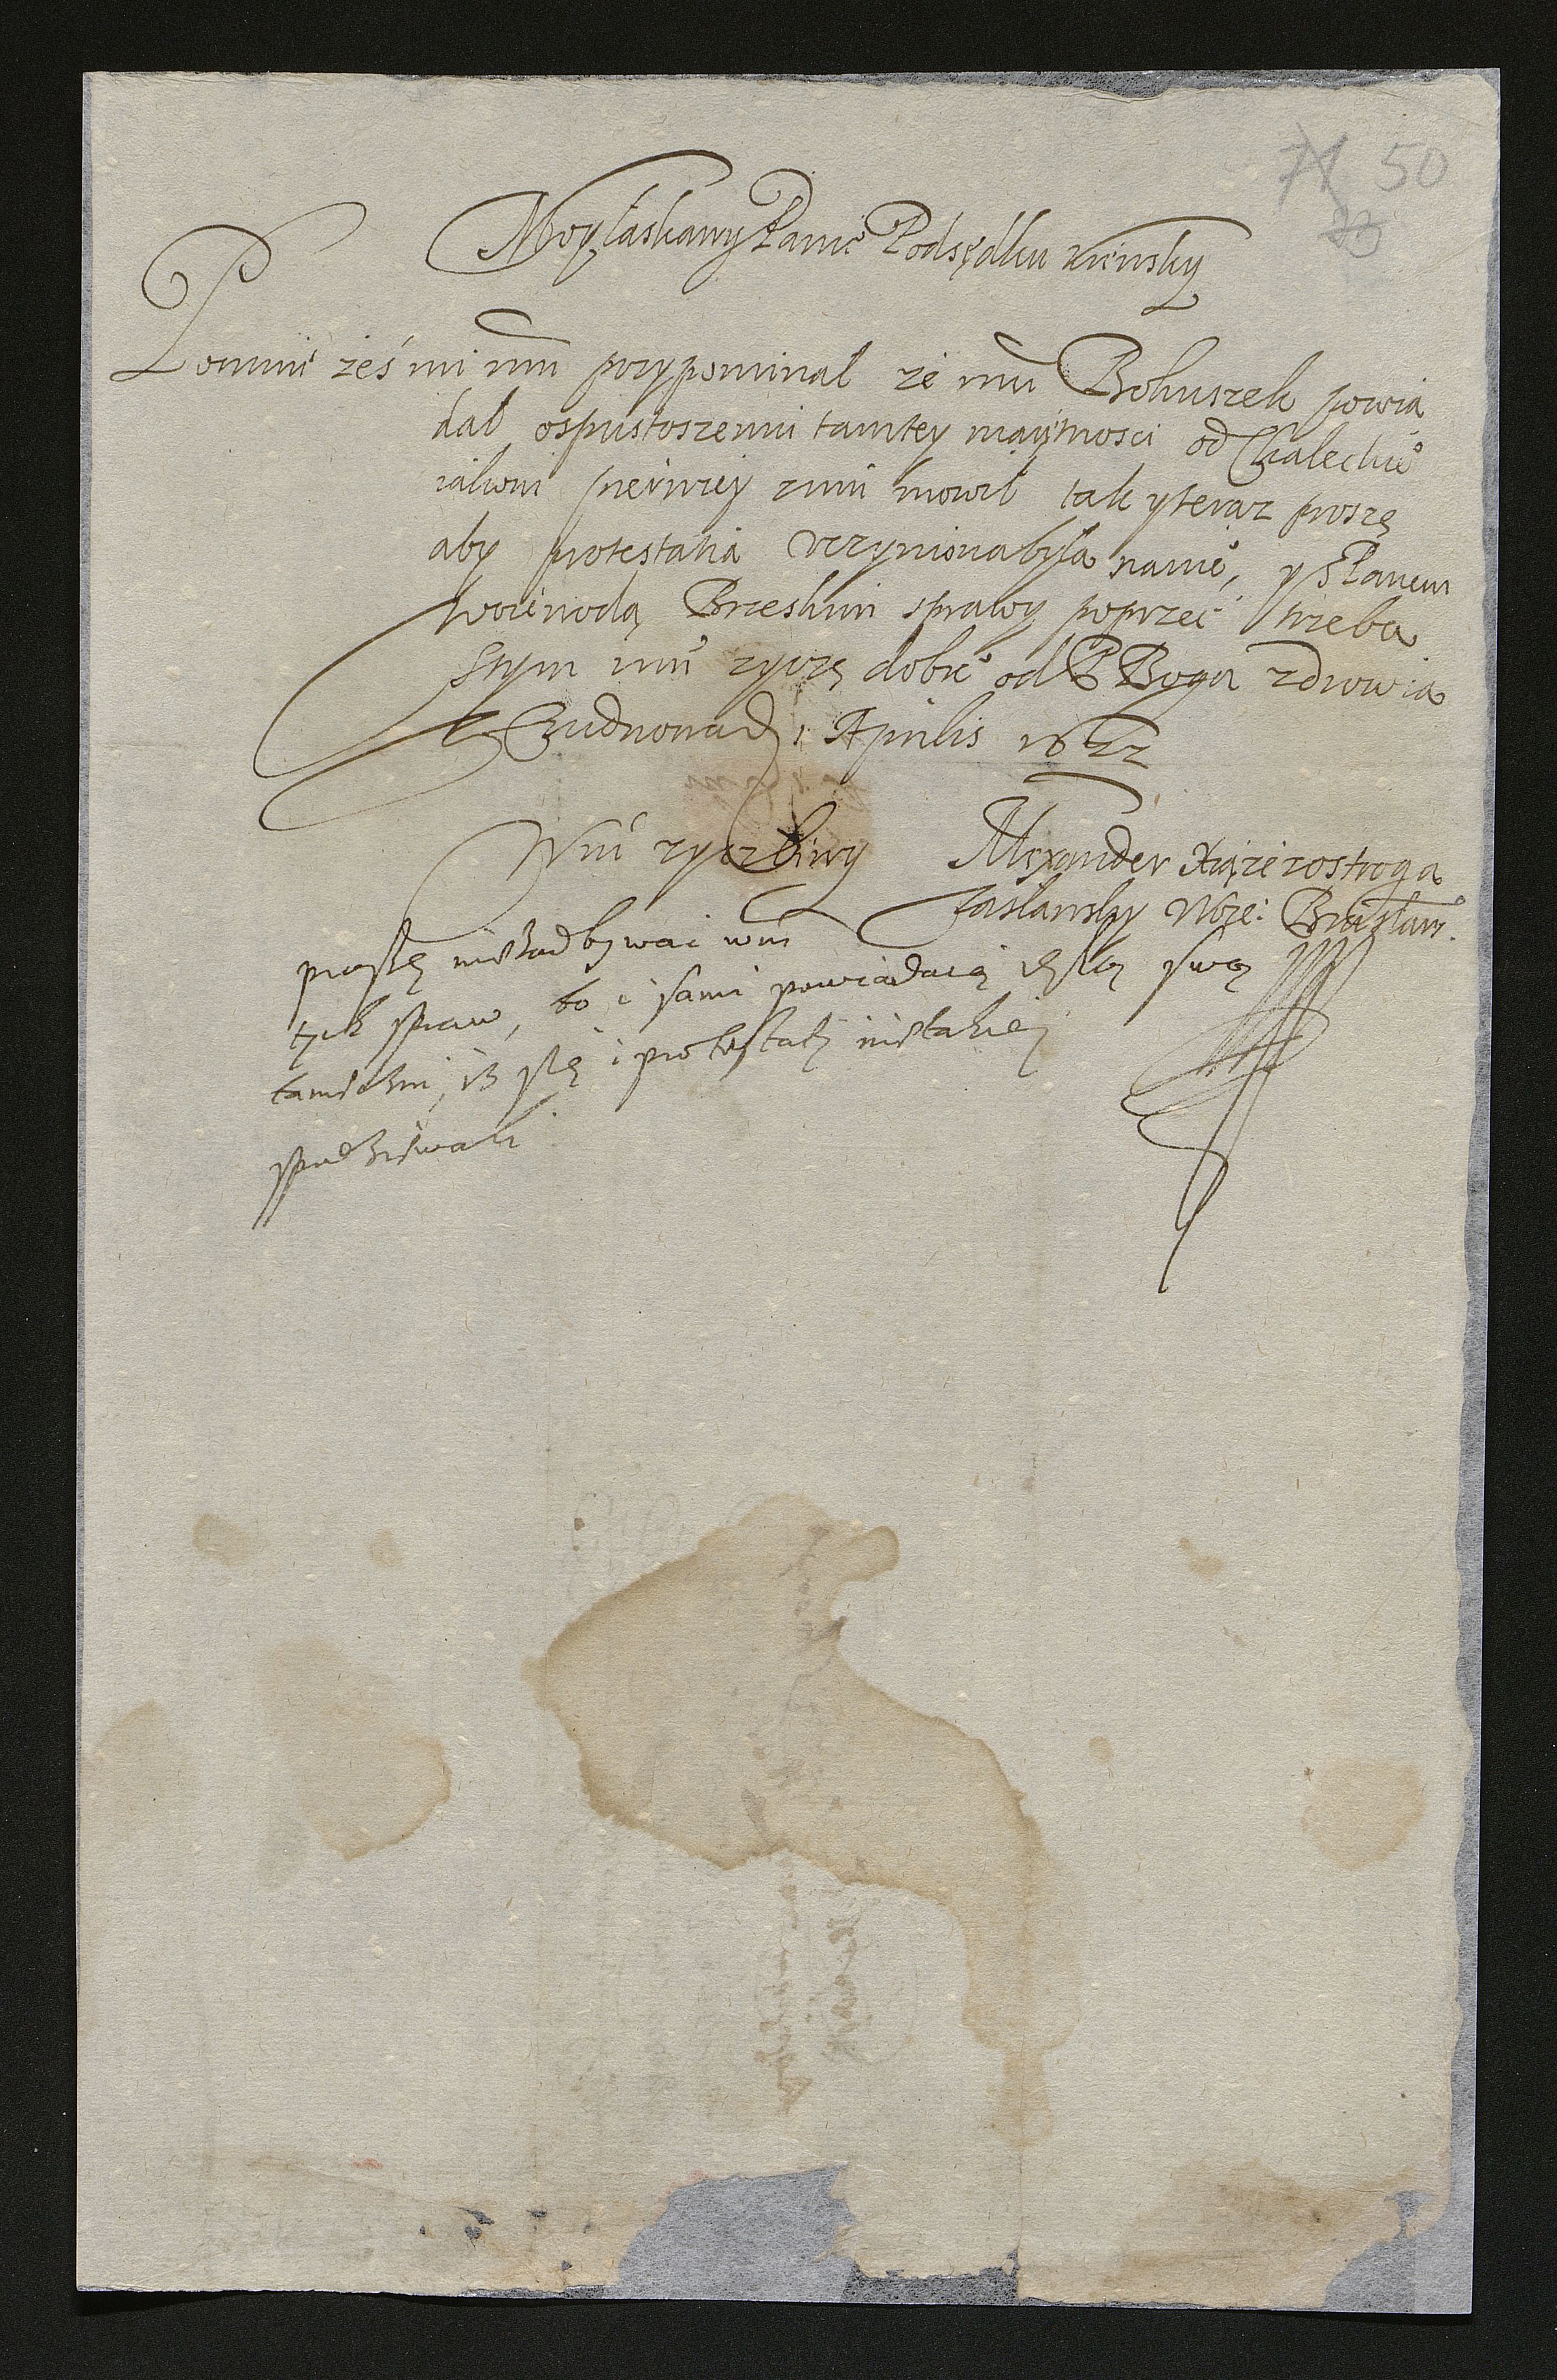 71 50
23
Moy łaskawy Panie Podsędku Kiiowsky
Pomnie żeś mi wm̃ przypominał że wm̃ Bohuszek powia
dał ospustoszeniu tamtey maiętnosci od Chaleckie°
iakom pierwiey zwm̃ mowił tak y teraz proszę
aby protestatia vczyniona była nanie°, y s Panem
Woiewodą Brzeskim sprawy poprzeć trzeba
stym wm̃ zyczę dobre° od P Boga zdrowia
Cudnowa d 1 Aprilis 1622
Wm̃ zyczliwy Alexander Xiąże zostroga
Zaslawsky Woie: Brasław.
proszę niezadbywać wm̃
tych spraw, bo i sami powiadaią
tameczni, iż się i protestaty
spodziewali